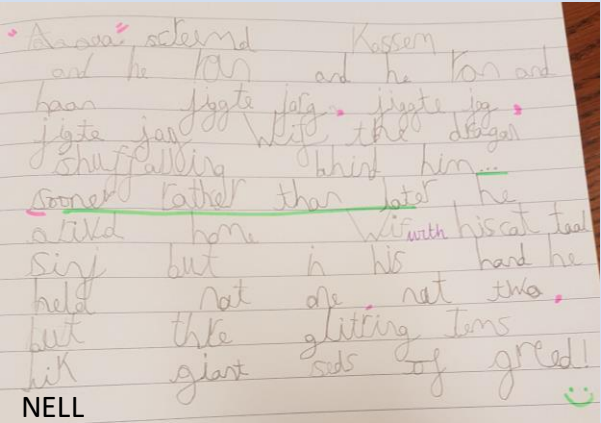 "Aaaaa" screimd Kassem
and he ran and he ran and
haan jiggte jarg, jiggte jog,
jigte jag Wif the dragan
shuffalling bhind him...
sooner rather than later he
arivd home Wif with his cat taal
Sinj but in his hand he
held nat one nat two,
but thre glittring Iems
lik giant seds of greed!
NELL